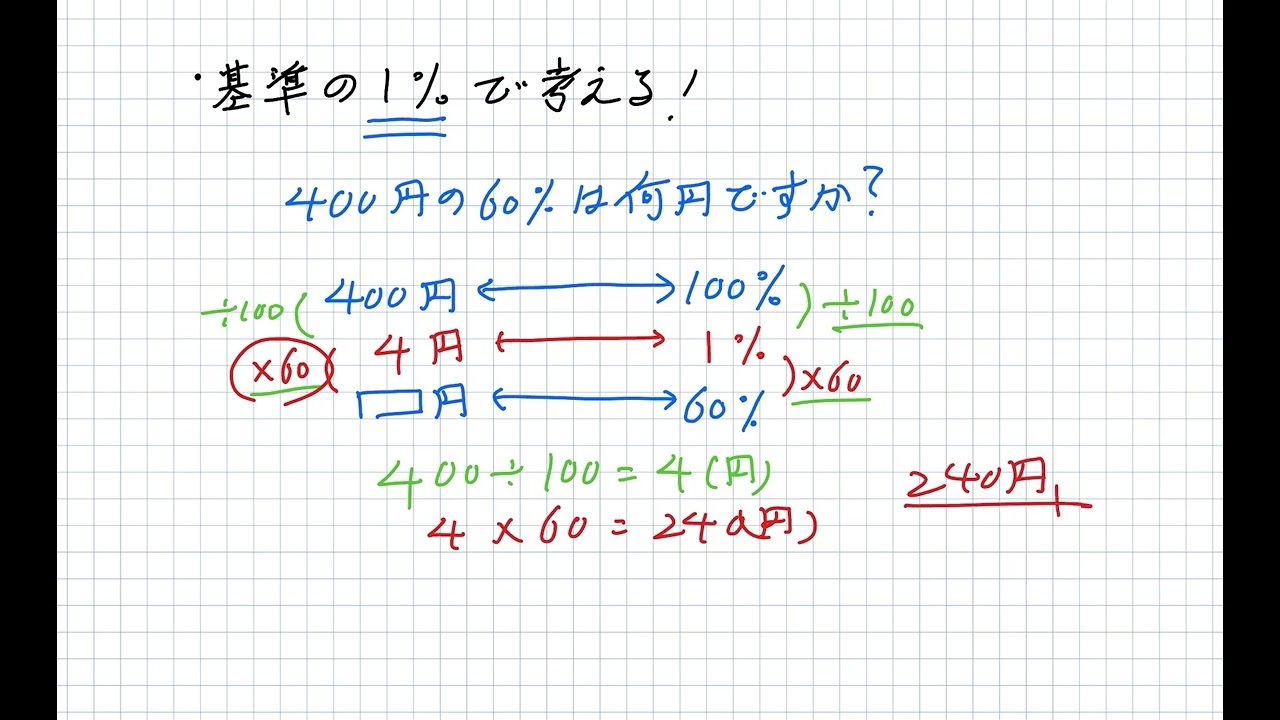 ・基準の1%で考える!
400円の60%は何円ですか?
÷100( 400円 ←→ 100% )÷100
×60( 4円 ←→ 1% )×60
□円 ←→ 60%
400÷100=4(円)
4×60=240(円)
240円